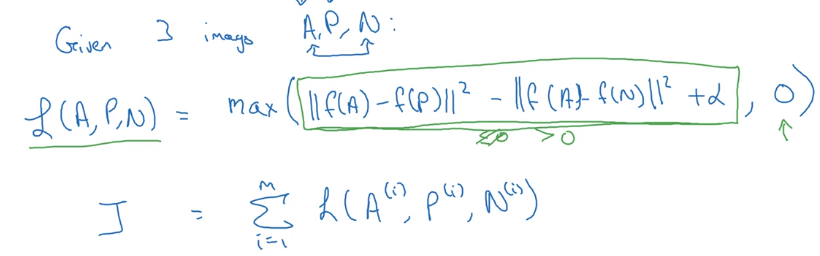 Given 3 images A, P, N:
L(A,P,N) = max(||f(A) - f(P)||² - ||f(A) - f(N)||² + α, 0)
≤0 >0
M
J = Σ L(A⁽ⁱ⁾, P⁽ⁱ⁾, N⁽ⁱ⁾)
i=1